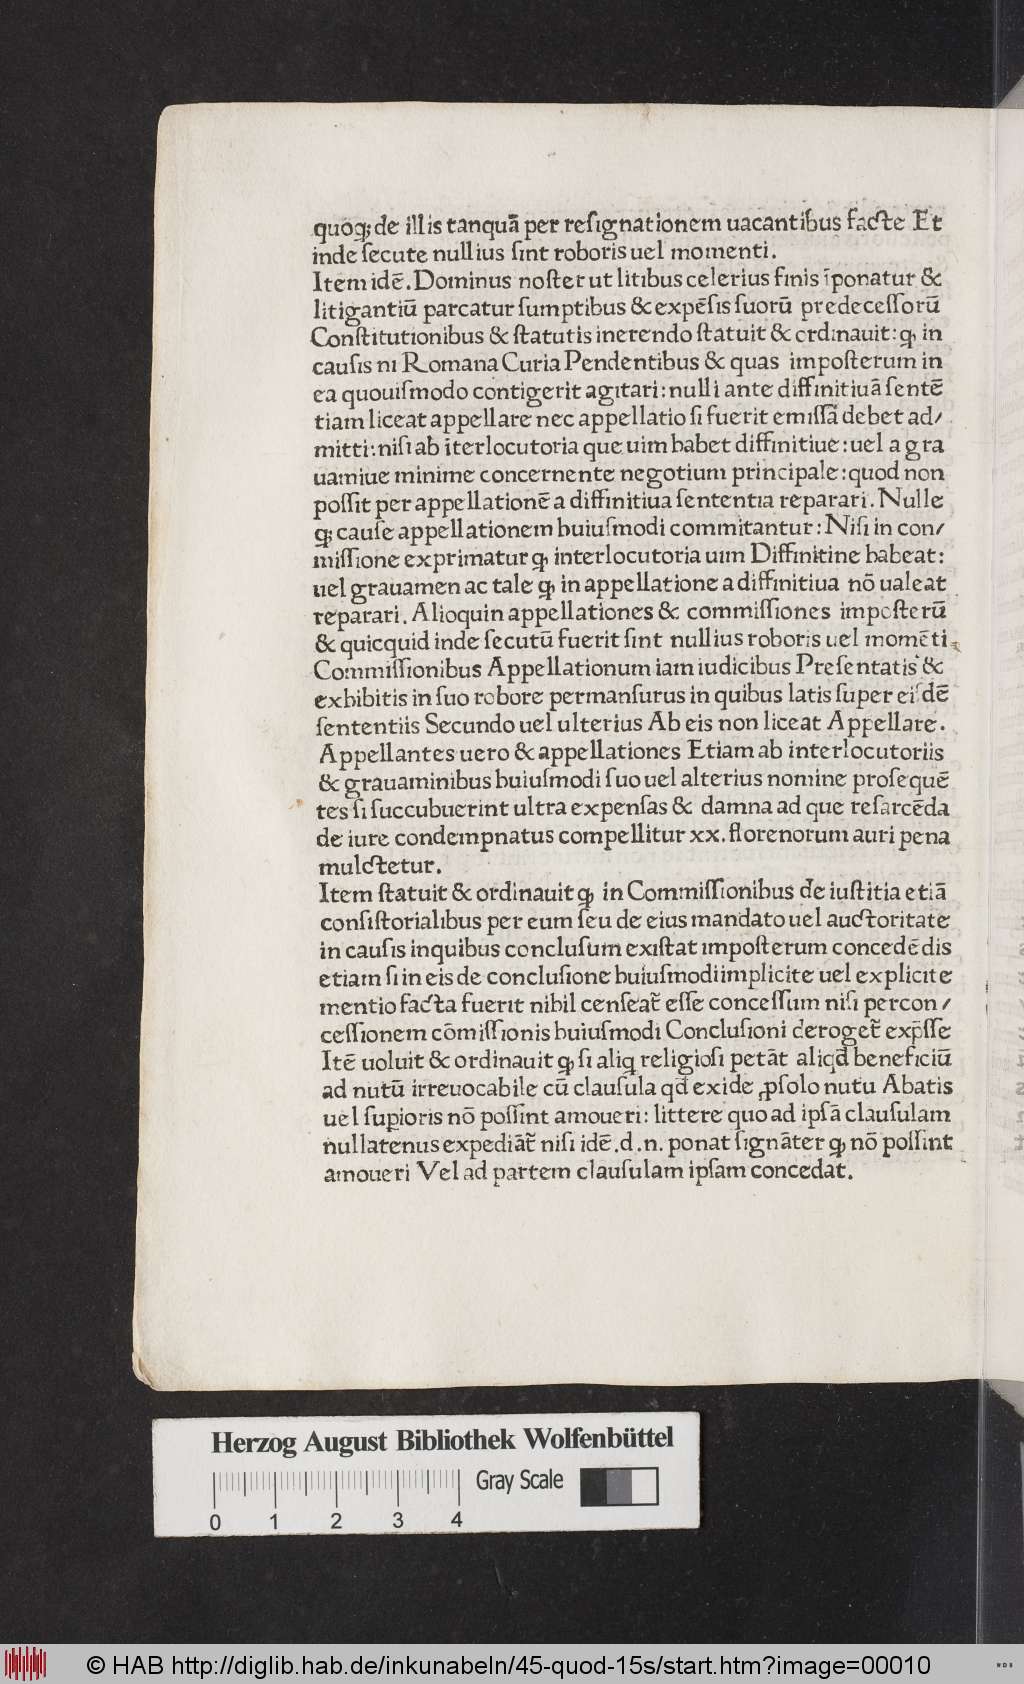 quoqꝫ de illis tanquā per reſignationem uacantibus facte Et
inde ſecute nullius ſint roboris uel momenti.
Item idē. Dominus noſter ut litibus celerius finis īponatur &
litigantiū parcatur ſumptibus & expēſis ſuorū predeceſſorū
Conſtitutionibus & ſtatutis inerendo ſtatuit & ordinauit: ꝙ in
cauſis ni Romana Curia Pendentibus & quas impoſterum in
ea quouiſmodo contigerit agitari: nulli ante diffinitiuā ſentē
tiam liceat appellare nec appellatio ſi fuerit emiſſa debet ad/
mitti: niſi ab īterlocutoria que uim habet diffinitiue: uel a gra
uamiue minime concernente negotium principale: quod non
poſſit per appellationē a diffinitiua ſententia reparari. Nulle
qꝫ cauſe appellationem huiuſmodi commitantur: Niſi in con/
miſſione exprimatur ꝙ interlocutoria uim Diffinitine habeat:
uel grauamen ac tale ꝙ in appellatione a diffinitiua nō ualeat
reparari. Alioquin appellationes & commiſſiones impoſterū
& quicquid inde ſecutū fuerit ſint nullius roboris uel momēti.
Commiſſionibus Appellationum iam iudicibus Preſentatis &
exhibitis in ſuo robore permanſurus in quibus latis ſuper eiſdē
ſententiis Secundo uel ulterius Ab eis non liceat Appellare.
Appellantes uero & appellationes Etiam ab interlocutoriis
& grauaminibus huiuſmodi ſuo uel alterius nomine proſequē
tes ſi ſuccubuerint ultra expenſas & damna ad que reſarcēda
de iure condempnatus compellitur xx. florenorum auri pena
mulctetur.
Item ſtatuit & ordinauit ꝙ in Commiſſionibus de iuſtitia etiā
conſiſtorialibus per eum ſeu de eius mandato uel auctoritate
in cauſis inquibus concluſum exiſtat impoſterum concedēdis
etiam ſi in eis de concluſione huiuſmodi implicite uel explicite
mentio facta fuerit nihil cenſeat̄ eſſe conceſſum niſi percon/
ceſſionem cōmiſſionis huiuſmodi Concluſioni deroget̄ exp̄ſſe
Itē uoluit & ordinauit ꝙ ſi aliq religioſi petāt aliqd̄ beneficiū
ad nutū irreuocabile cū clauſula qd̄ exide ꝓſolo nutu Abatis
uel ſupioris nō poſſint amoueri: littere quo ad ipſā clauſulam
nullatenus expediāt̄ niſi idē. d. n. ponat ſignāter ꝙ nō poſſint
amoueri Vel ad partem clauſulam ipſam concedat.
Herzog August Bibliothek Wolfenbüttel
Gray Scale
0 1 2 3 4
© HAB http://diglib.hab.de/inkunabeln/45-quod-15s/start.htm?image=00010